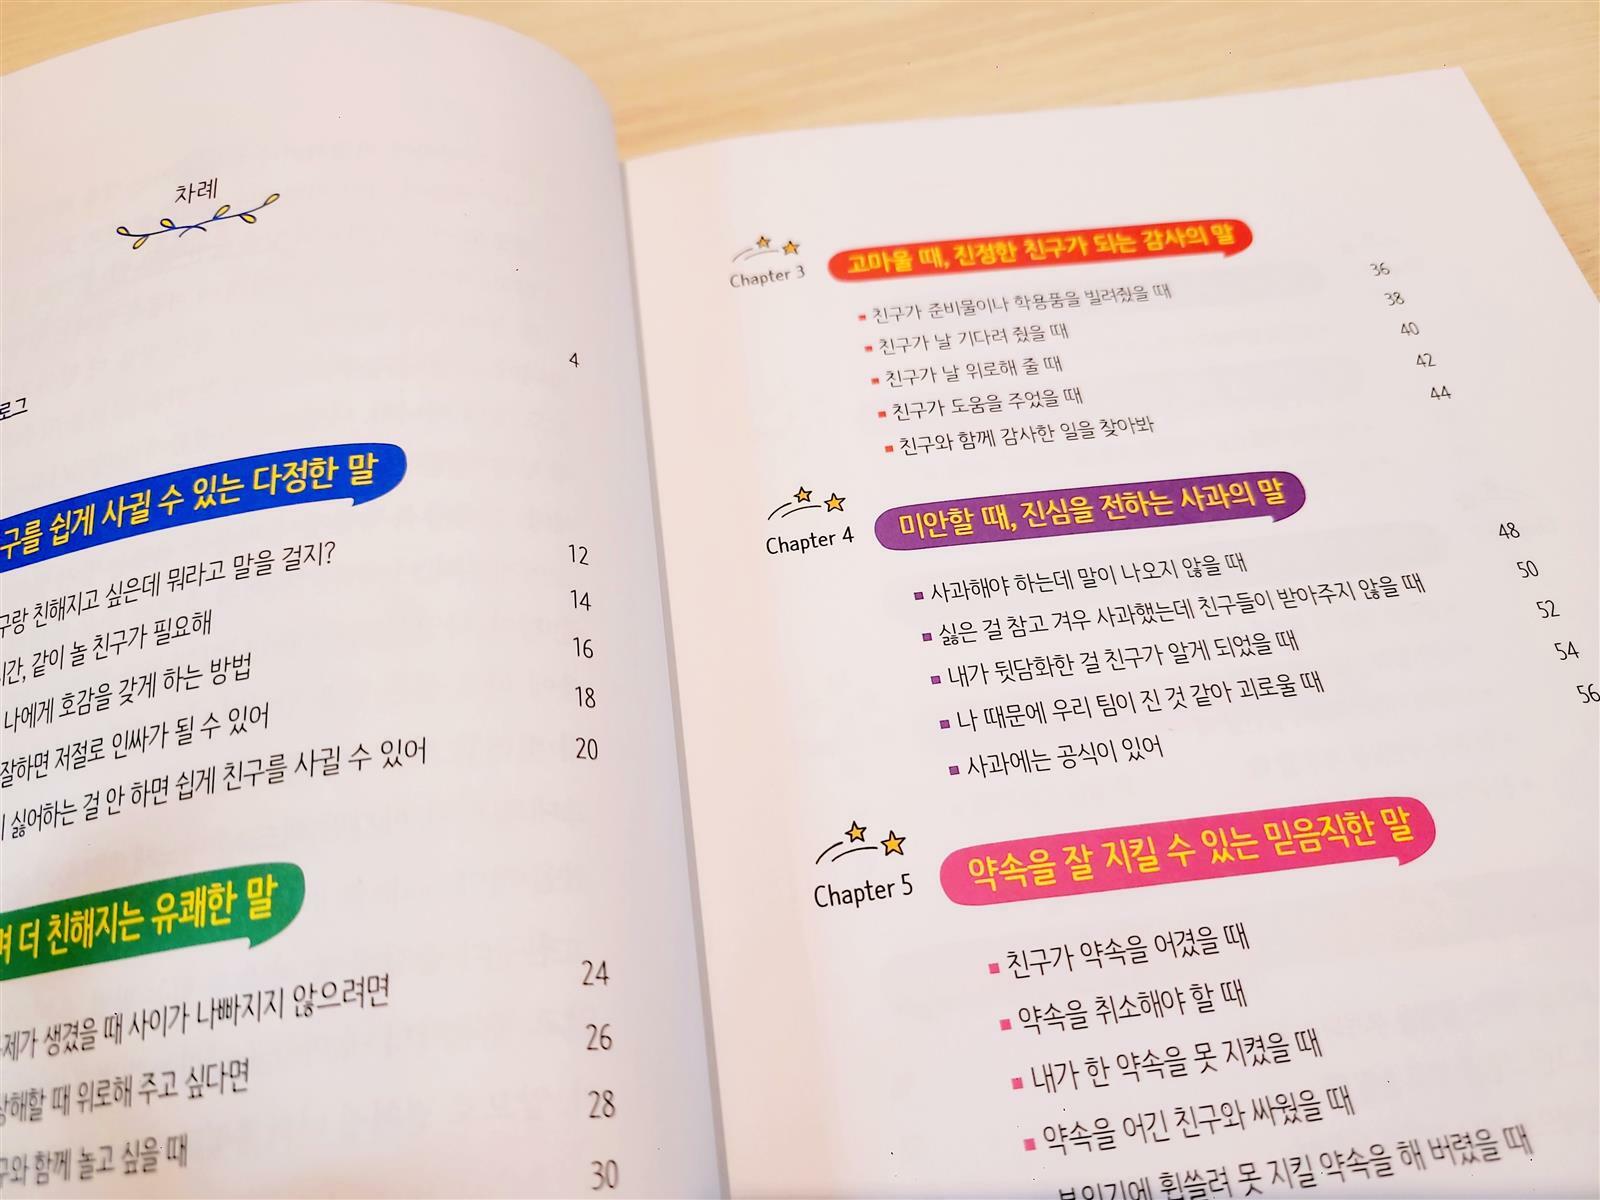 차례
4
구를 쉽게 사귈 수 있는 다정한 말
친해지고 싶은데 뭐라고 말을 걸지? 12
같이 놀 친구가 필요해 14
나에게 호감을 갖게 하는 방법 16
잘하면 저절로 인싸가 될 수 있어 18
싫어하는 걸 안 하면 쉽게 친구를 사귈 수 있어 20
더 친해지는 유쾌한 말
생겼을 때 사이가 나빠지지 않으려면 24
위로해 주고 싶다면 26
함께 놀고 싶을 때 28
30
Chapter 3 고마울 때, 진정한 친구가 되는 감사의 말
▪ 친구가 준비물이나 학용품을 빌려줬을 때 36
▪ 친구가 날 기다려 줬을 때 38
▪ 친구가 날 위로해 줄 때 40
▪ 친구가 도움을 주었을 때 42
▪ 친구와 함께 감사한 일을 찾아봐 44
Chapter 4 미안할 때, 진심을 전하는 사과의 말
▪ 사과해야 하는데 말이 나오지 않을 때 48
▪ 싫은 걸 참고 겨우 사과했는데 친구들이 받아주지 않을 때 50
▪ 내가 뒷담화한 걸 친구가 알게 되었을 때 52
▪ 나 때문에 우리 팀이 진 것 같아 괴로울 때 54
▪ 사과에는 공식이 있어 56
Chapter 5 약속을 잘 지킬 수 있는 믿음직한 말
▪ 친구가 약속을 어겼을 때
▪ 약속을 취소해야 할 때
▪ 내가 한 약속을 못 지켰을 때
▪ 약속을 어긴 친구와 싸웠을 때
휩쓸려 못 지킬 약속을 해 버렸을 때